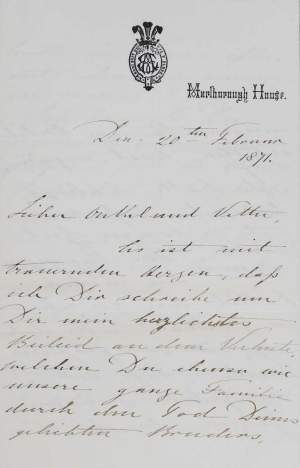 Marlborough House.
Den 20ten Februar
1871.
Lieber Onkel und Vetter,
Es ist mit
trauernden Herzen, daß
ich Dir schreibe um
Dir mein herzlichstes
Beileid an dem Verluste,
welchen Du ebenso wie
unsere ganze Familie
durch den Tod Deines
geliebten Bruders,